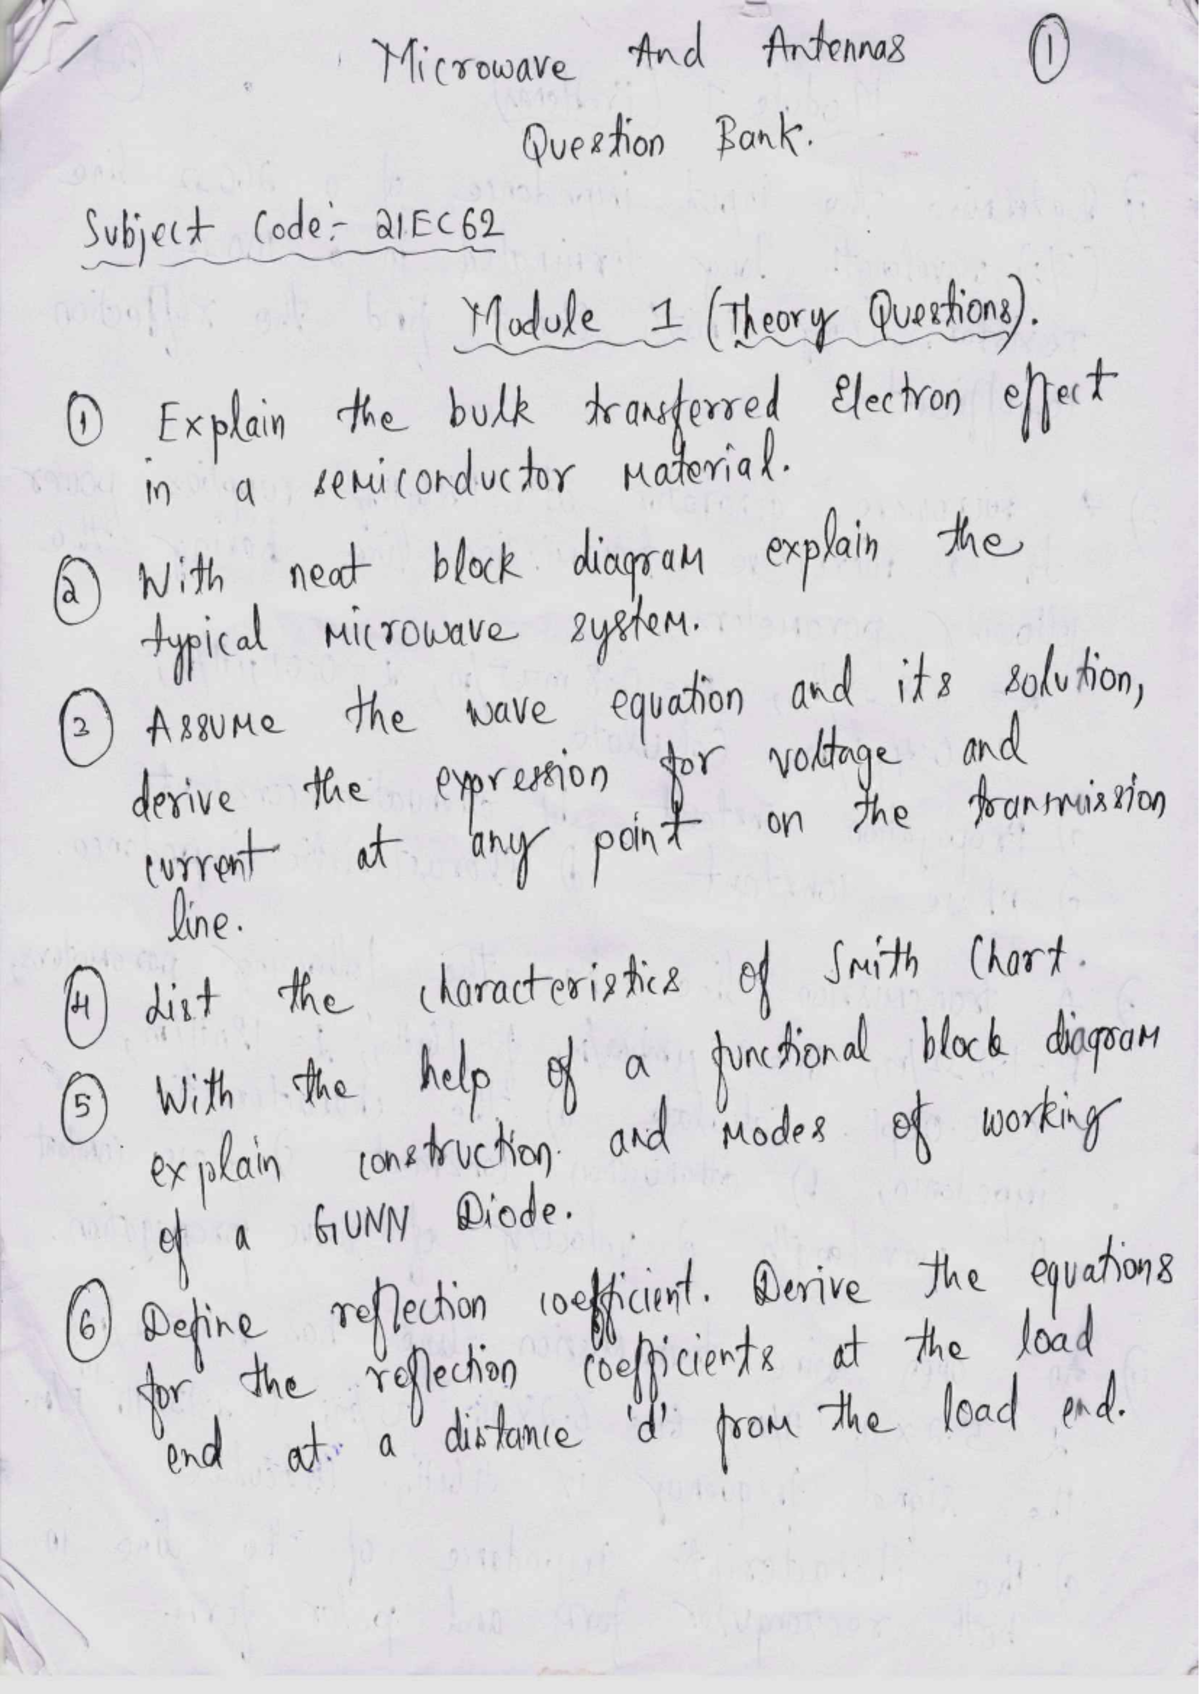 Microwave And Antennas ①
Question Bank.
Subject Code:- 21EC62
Module 1 (Theory Questions).
① Explain the bulk transferred Electron effect
in a semiconductor Material.
② With neat block diagram explain the
typical Microwave system.
③ Assume the wave equation and its solution,
derive the expression for voltage and
current at any point on the transmission
line.
④ List the characteristics of Smith Chart.
⑤ With the help of a functional block diagram
explain construction and Modes of working
of a GUNN Diode.
⑥ Define reflection coefficient. Derive the equations
for the reflection coefficients at the load
end at a distance 'd' from the load end.